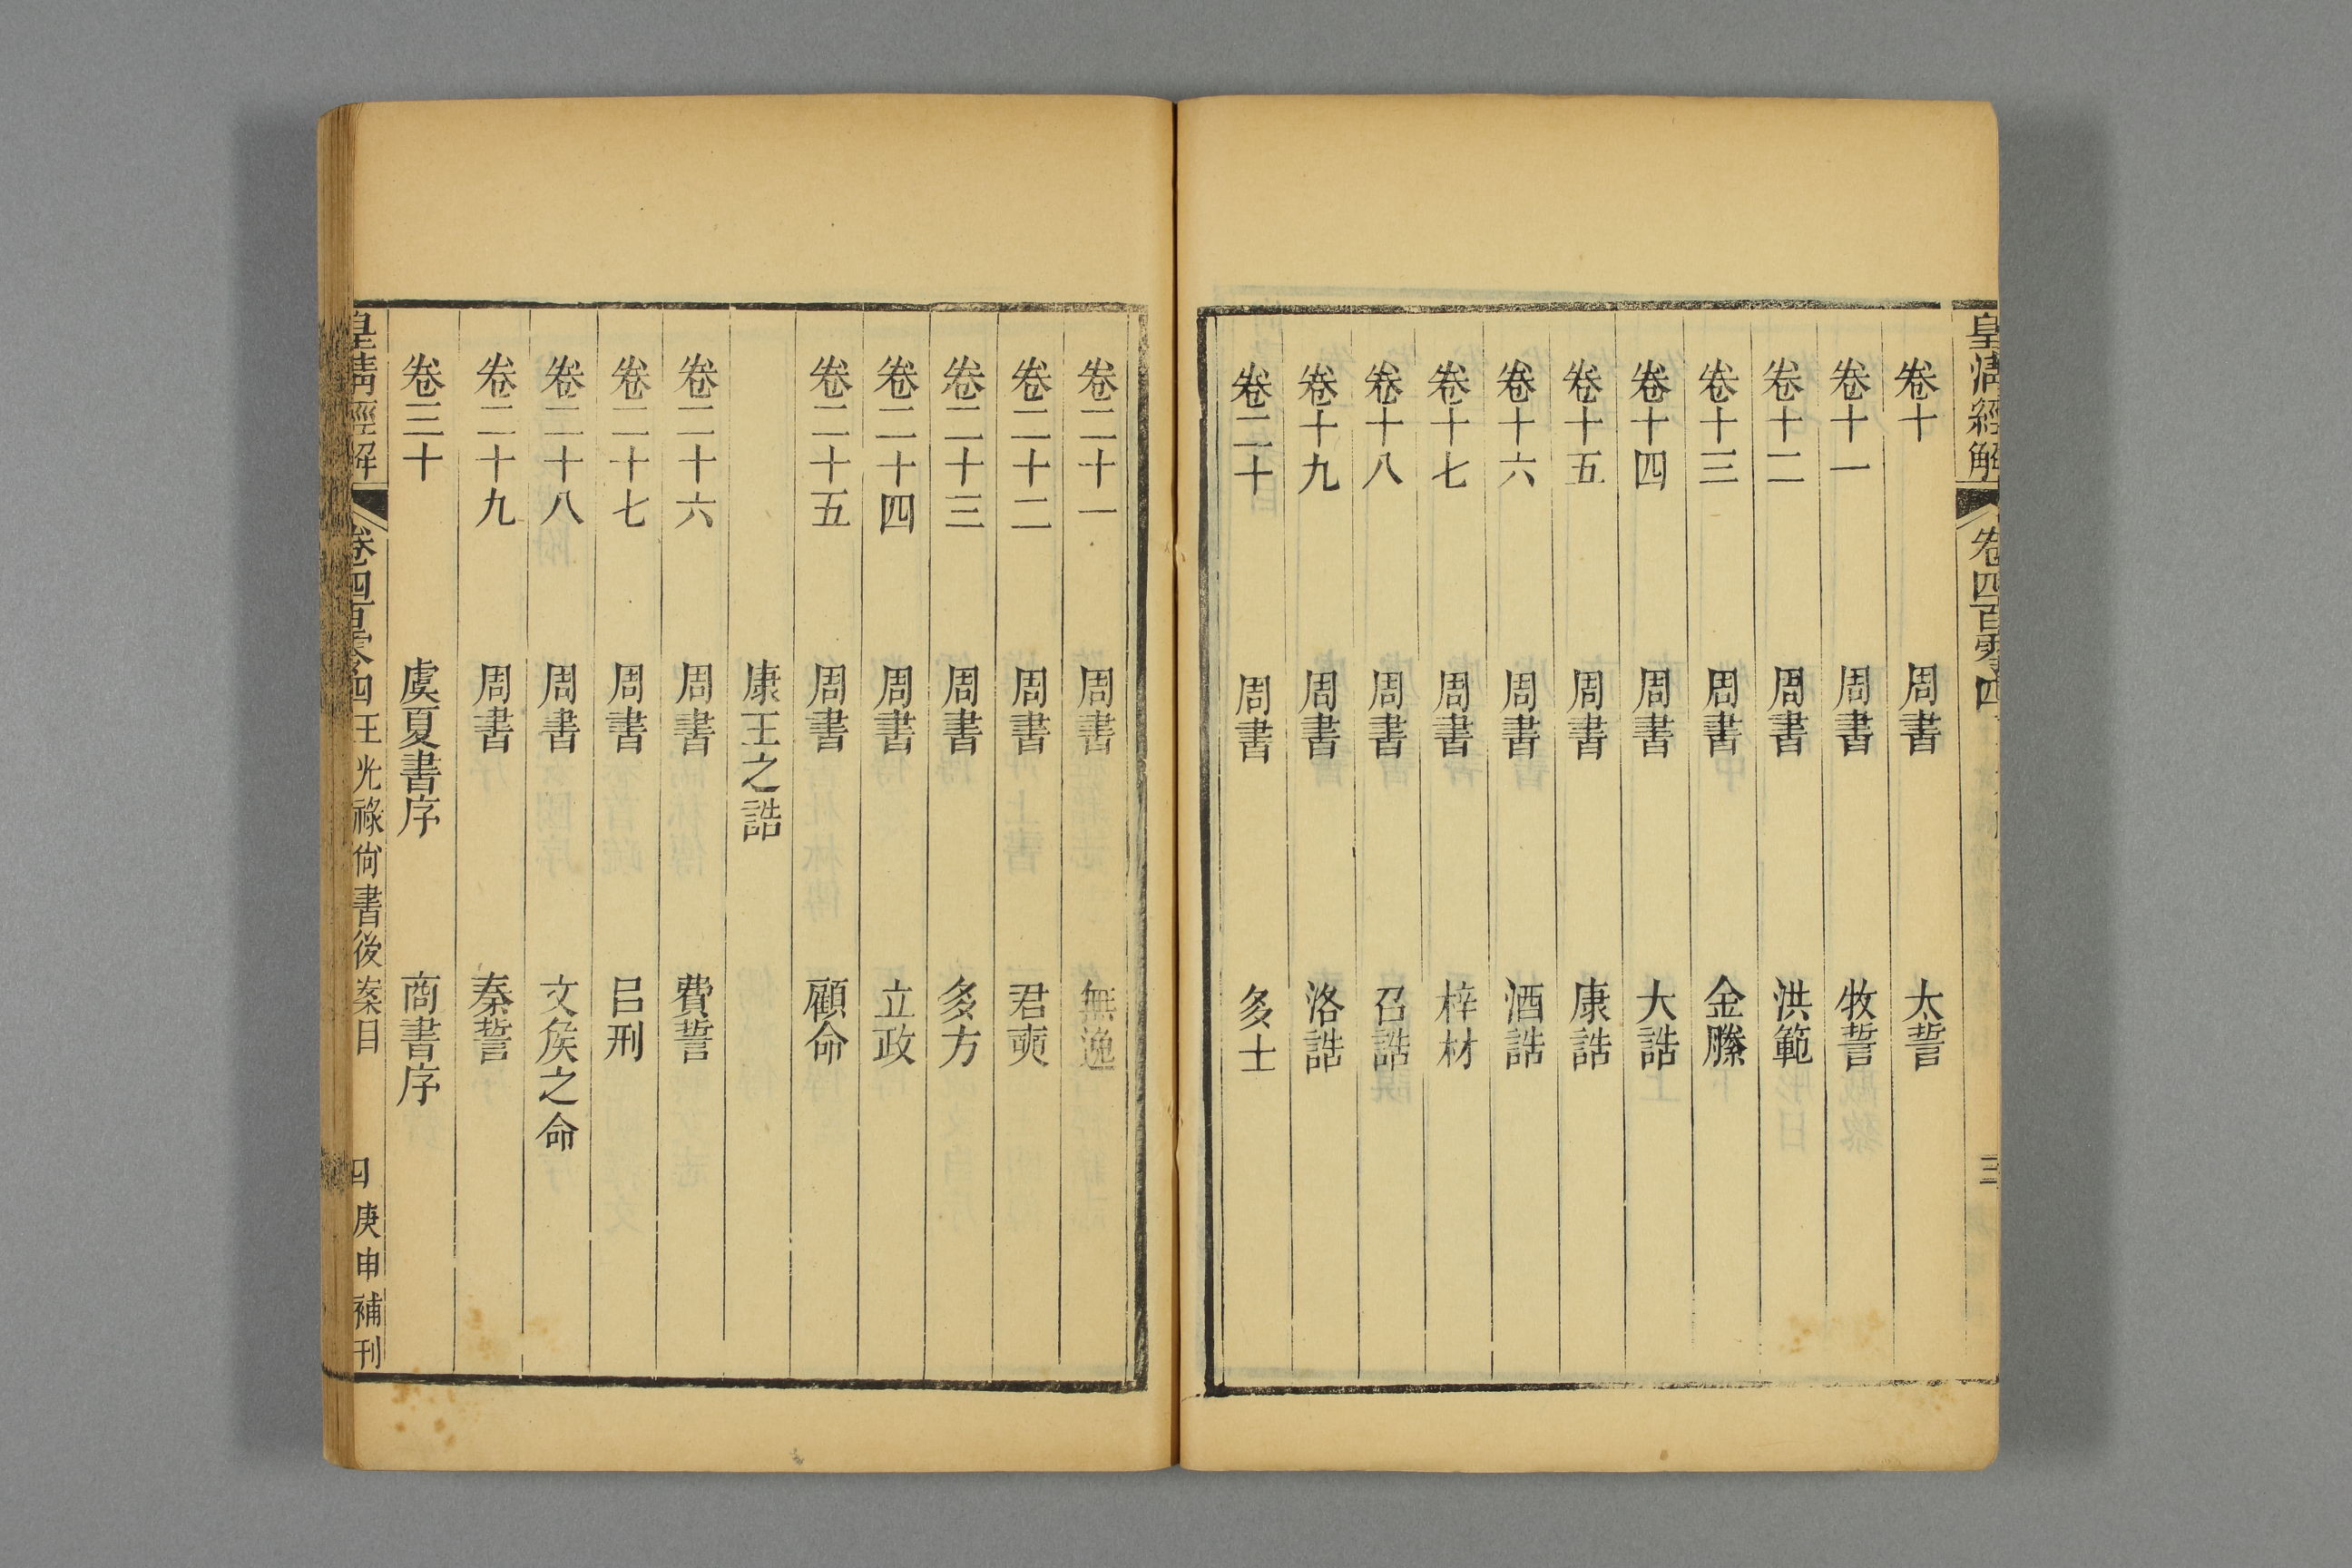 皇清經解 卷四百零四 三
卷十 周書 太誓
卷十一 周書 牧誓
卷十二 周書 洪範
卷十三 周書 金縢
卷十四 周書 大誥
卷十五 周書 康誥
卷十六 周書 酒誥
卷十七 周書 梓材
卷十八 周書 召誥
卷十九 周書 洛誥
卷二十 周書 多士
卷二十一 周書 無逸
卷二十二 周書 君奭
卷二十三 周書 多方
卷二十四 周書 立政
卷二十五 周書 顧命
康王之誥
卷二十六 周書 費誓
卷二十七 周書 呂刑
卷二十八 周書 文侯之命
卷二十九 周書 秦誓
卷三十 虞夏書序 商書序
皇清經解 卷四百零四 王光祿尙書後案目 四 庚申補刊